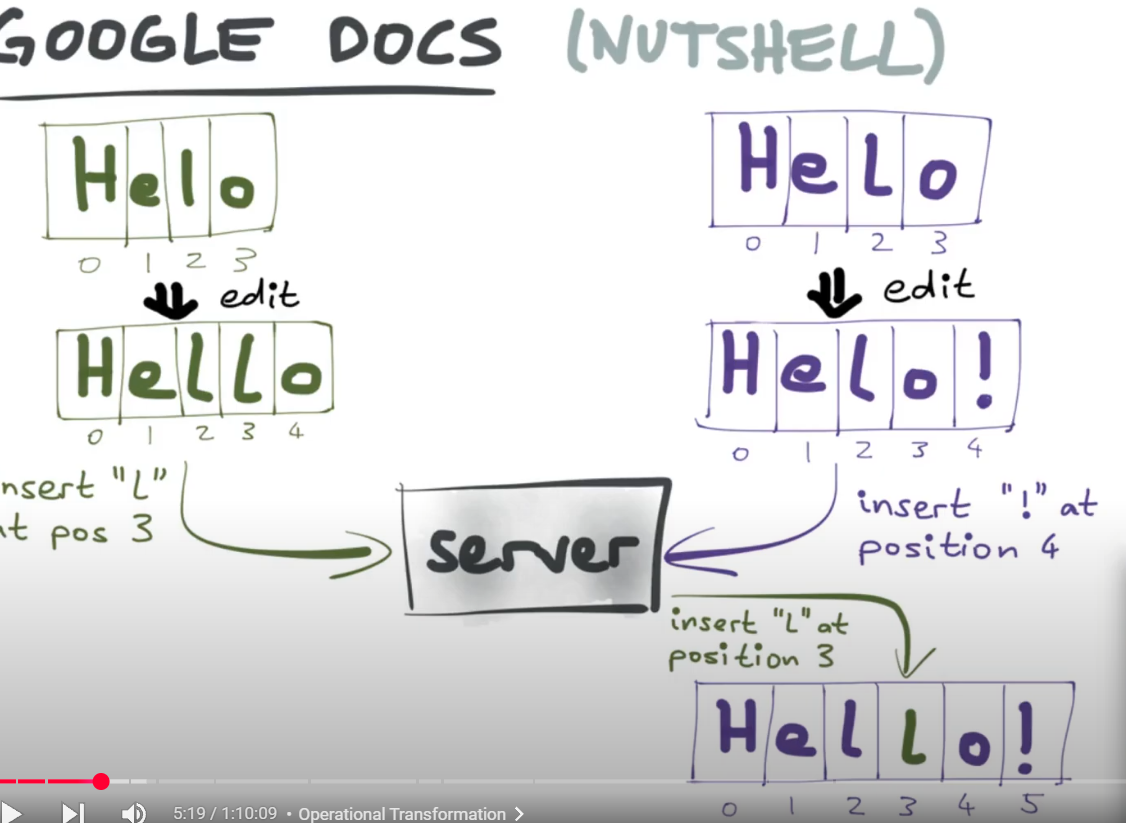 GOOGLE DOCS (NUTSHELL)
Helo
0 1 2 3
edit
Hello
0 1 2 3 4
nsert "L"
at pos 3
Helo
0 1 2 3
edit
Helo!
0 1 2 3 4
insert "!" at
position 4
server
insert "L" at
position 3
Hello!
0 1 2 3 4 5
5:19 / 1:10:09 • Operational Transformation